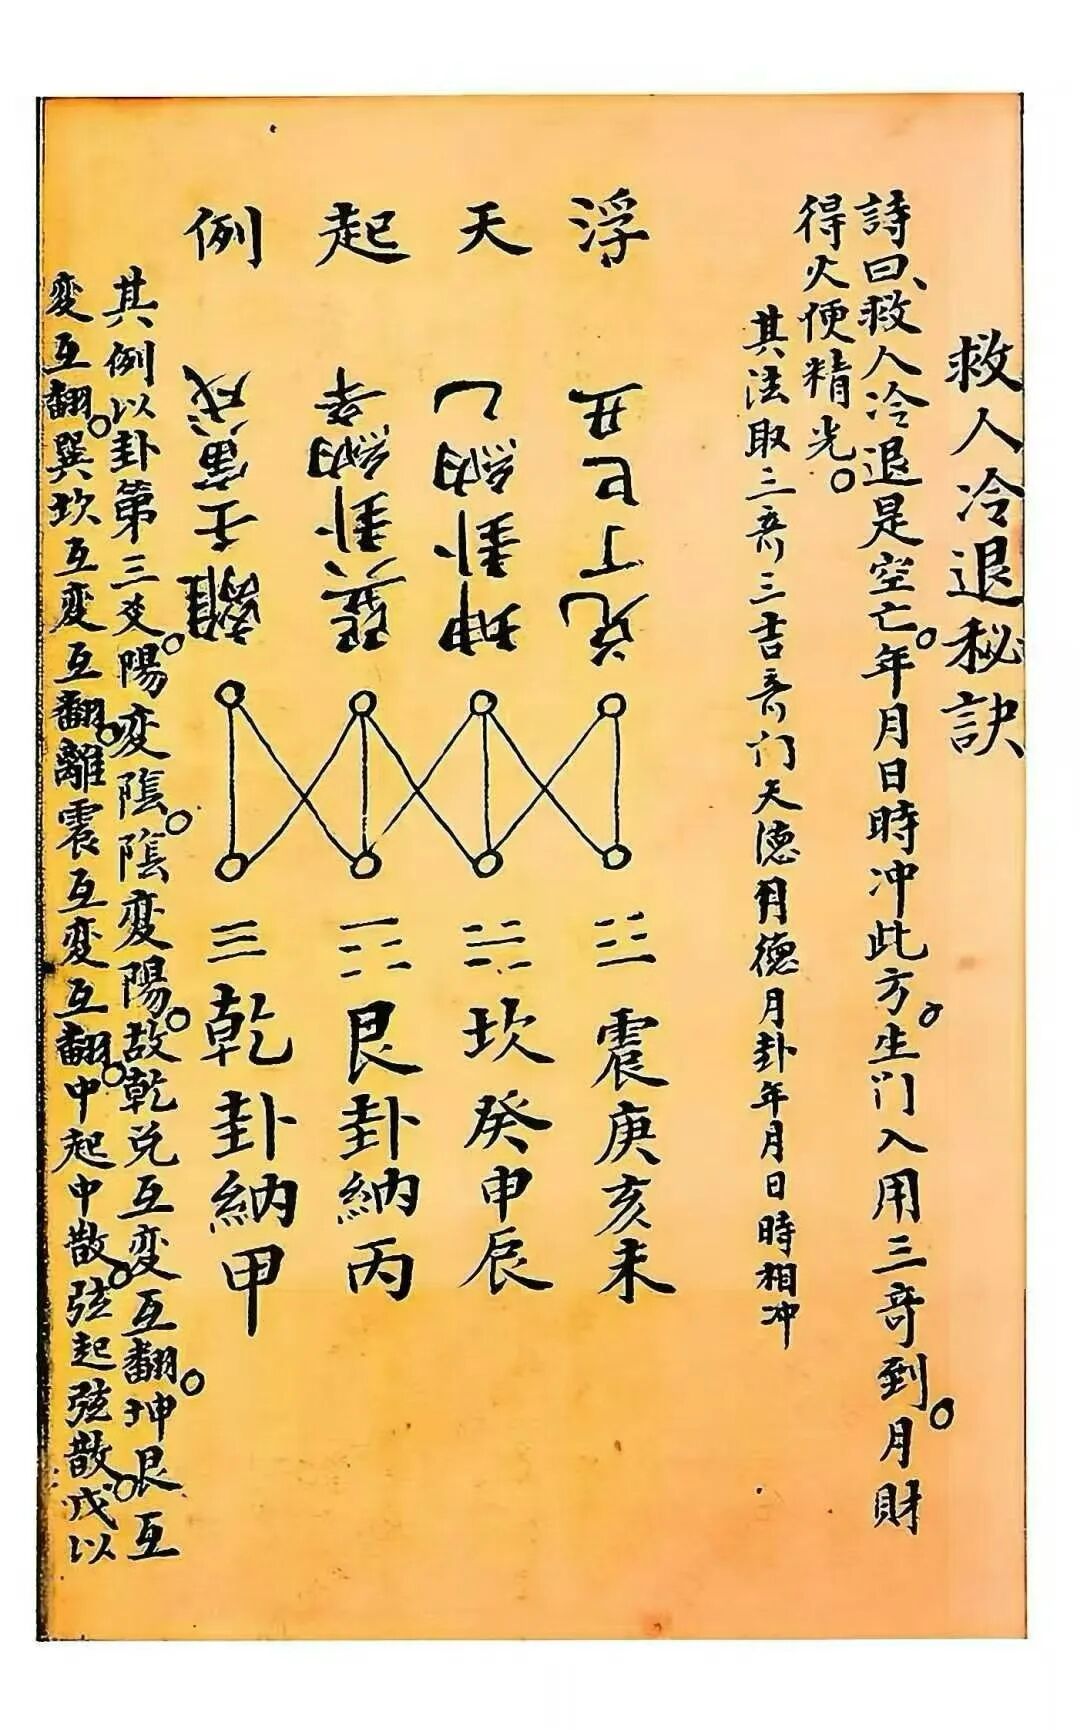 救人冷退秘訣
詩曰、救人冷退是空亡。年月日時冲此方。生门入用三奇到。月財
得火便精光。
其法取三奇三吉奇门天德月德月卦年月日時相冲
浮天起例
兌丁巳丑
坤卦納乙
巽卦納辛
離壬寅戌
☳震庚亥未
☵坎癸申辰
☶艮卦納丙
☰乾卦納甲
其例以卦第三爻。陽変陰。陰変陽。故乾兌互変互翻。坤艮互
変互翻。巽坎互変互翻。離震互変互翻。中起中散。弦起弦散。戊以